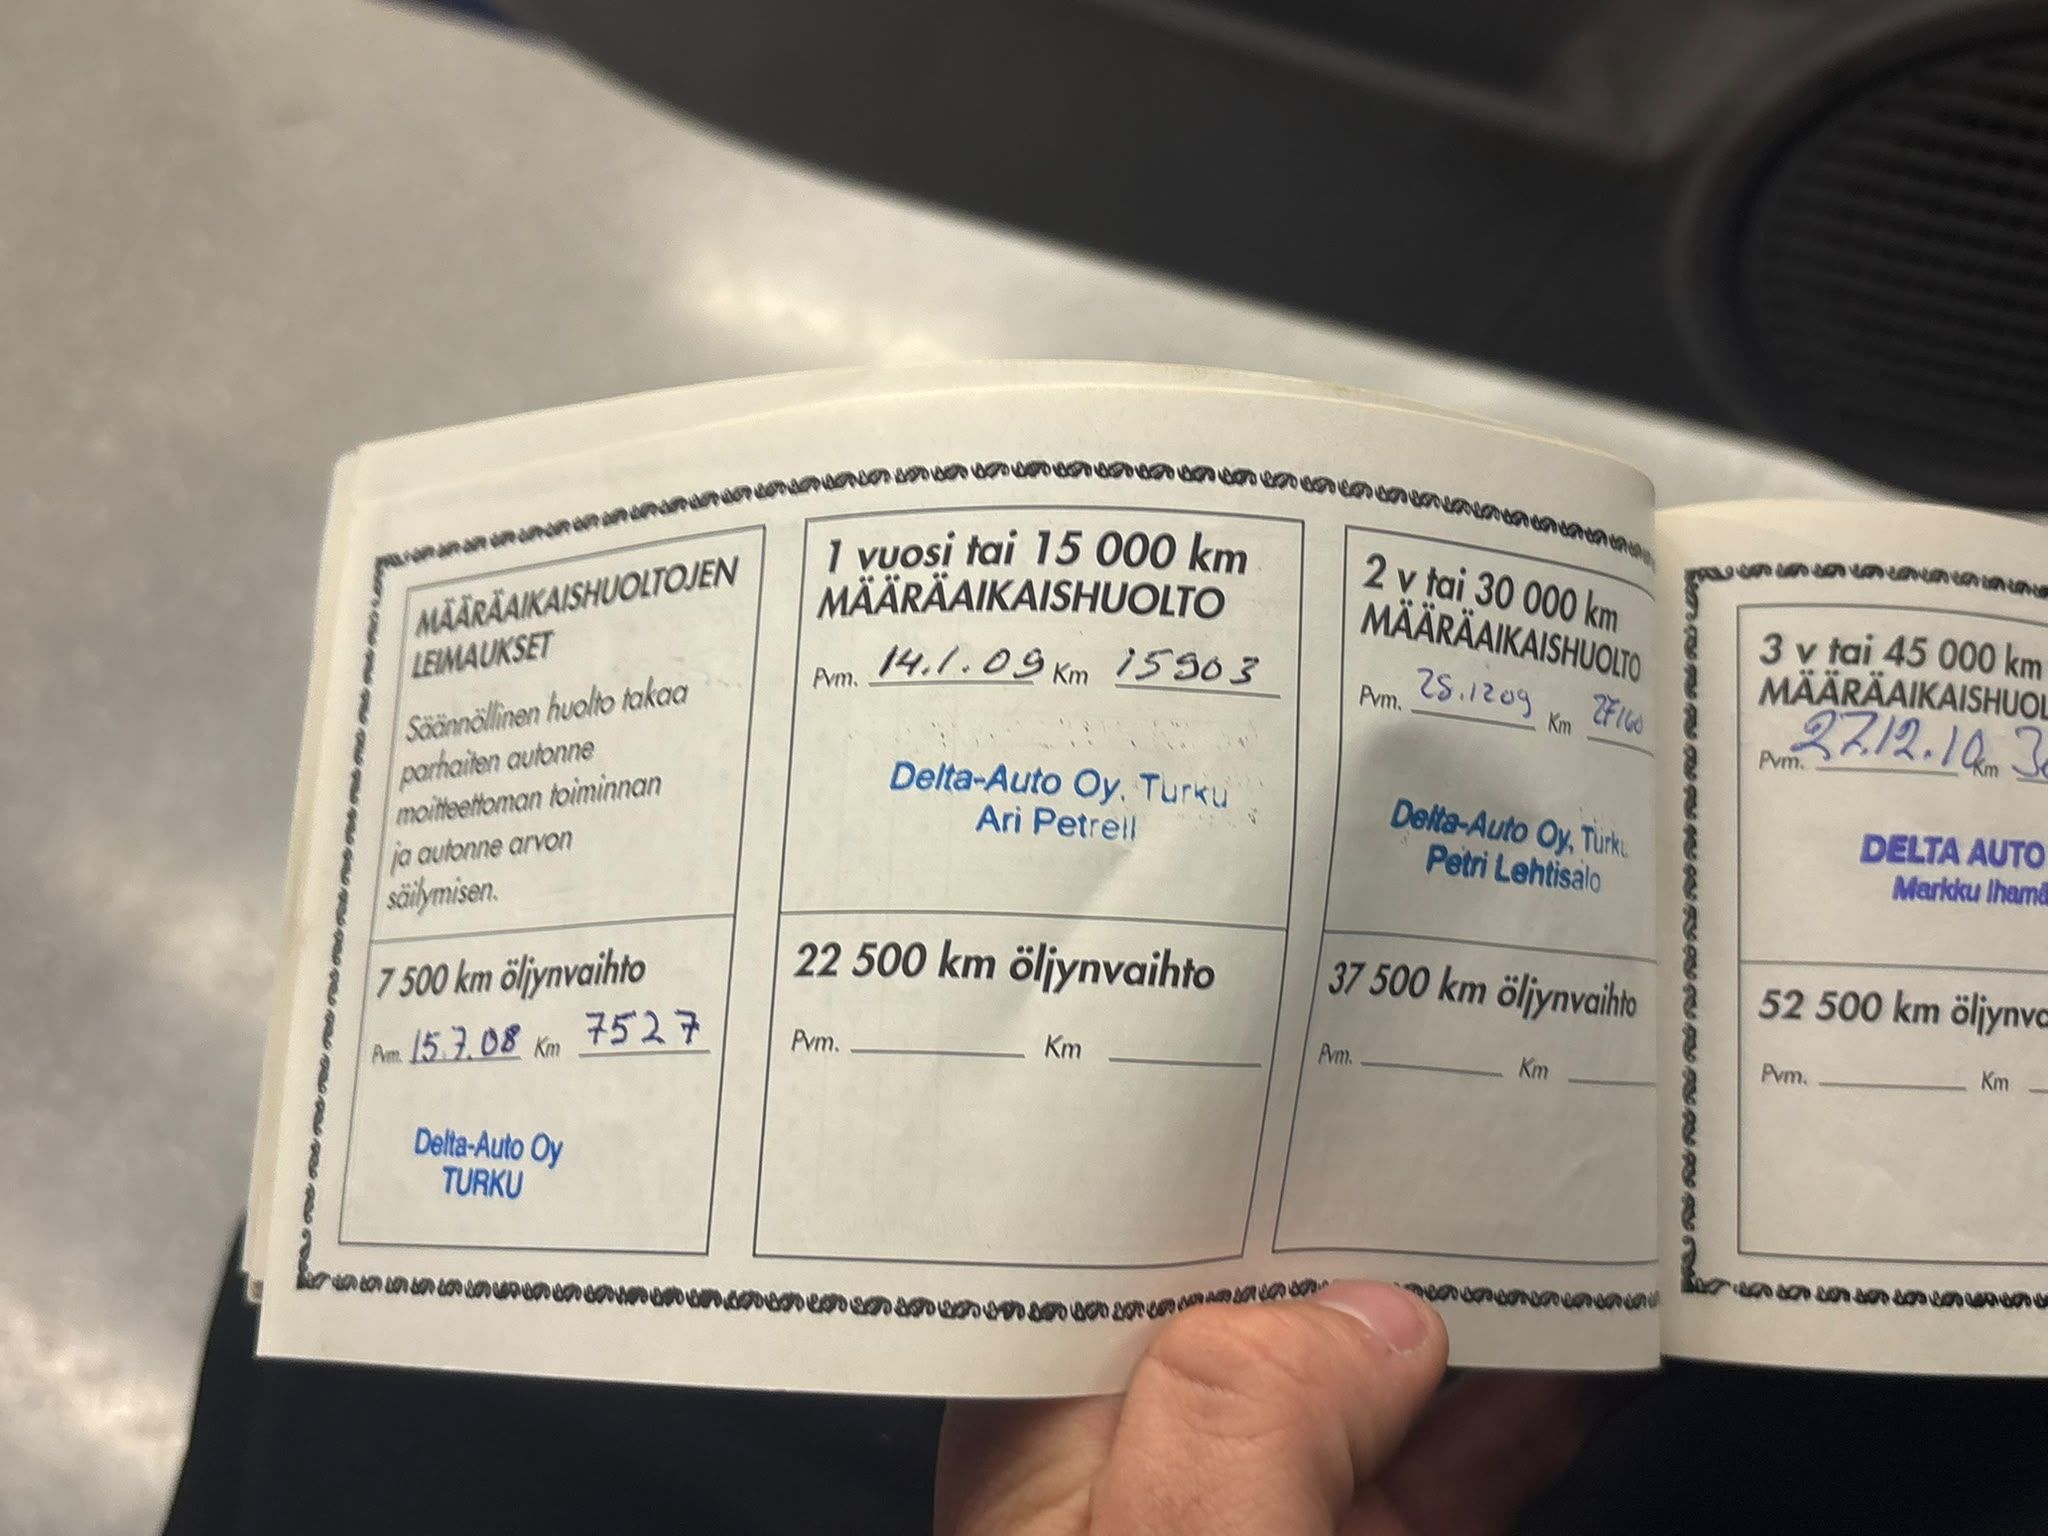 MÄÄRÄAIKAISHUOLTOJEN
LEIMAUKSET
Säännöllinen huolto takaa
parhaiten autonne
moitteettoman toiminnan
ja autonne arvon
säilymisen.
7 500 km öljynvaihto
Pvm. 15.7.08 Km 7527
Delta-Auto Oy
TURKU
1 vuosi tai 15 000 km
MÄÄRÄAIKAISHUOLTO
Pvm. 14.1.09 Km 15903
Delta-Auto Oy, Turku
Ari Petrell
22 500 km öljynvaihto
Pvm. Km
2 v tai 30 000 km
MÄÄRÄAIKAISHUOLTO
Pvm. Km
Delta-Auto Oy, Turku
Petri Lehtisalo
37 500 km öljynvaihto
Pvm. Km
3 v tai 45 000 km
Pvm. 27.12.10 Km
DELTA AUTO
Markku
52 500 km
Pvm. Km